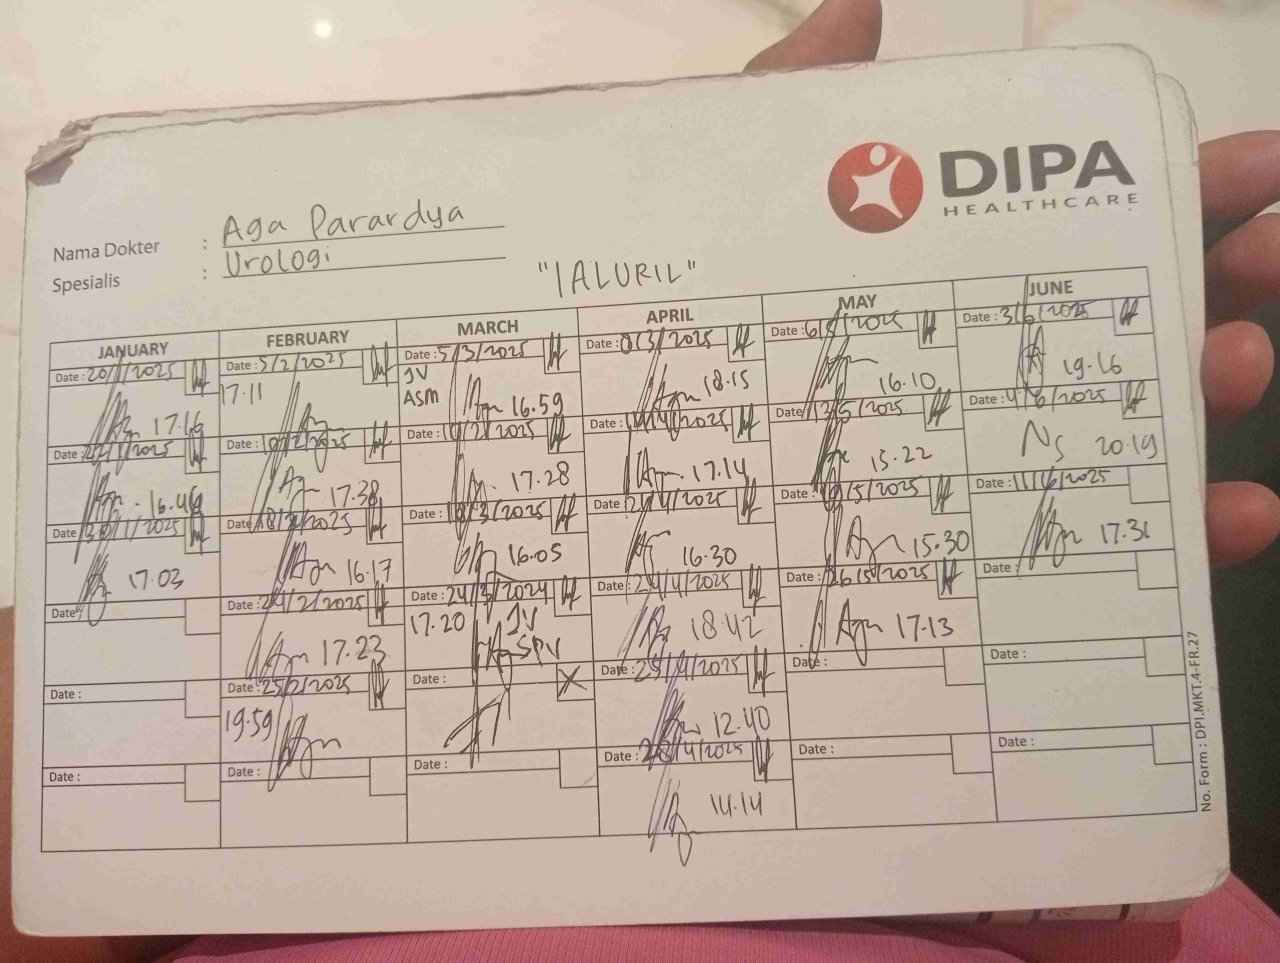 DIPA
HEALTHCARE
Nama Dokter : Aga Parardya
Spesialis : Urologi
"IALURIL"
JANUARY
Date : 20/1/2025
17.16
Date : 22/1/2025
16.46
Date : 30/1/2025
17.03
Date :
Date :
Date :
FEBRUARY
Date : 5/2/2025
17.11
Date : 10/2/2025
17.38
Date : 18/2/2025
16.17
Date : 24/2/2025
17.23
Date : 25/2/2025
19.59
Date :
MARCH
Date : 5/3/2025
JV
ASM
16.59
Date : 10/2/2025
17.28
Date : 18/3/2025
16.05
Date : 24/3/2024
17.20 JV
SPV
Date :
Date :
APRIL
Date : 8/3/2025
18.15
Date : 14/4/2025
17.14
Date : 21/4/2025
16.30
Date : 24/4/2025
18.42
Date : 25/4/2025
12.40
Date : 28/4/2025
14.14
MAY
Date : 6/5/2025
16.10
Date : 13/5/2025
15.22
Date : 19/5/2025
15.30
Date : 26/5/2025
17.13
Date :
Date :
JUNE
Date : 3/6/2025
19.16
Date : 4/6/2025
NS 20.19
Date : 11/6/2025
17.31
Date :
Date :
Date :
No. Form : DPI.MKT.4-FR.27